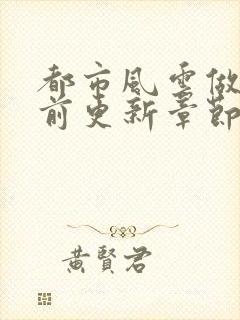 都市風雲做
前更新章節
黃賢君